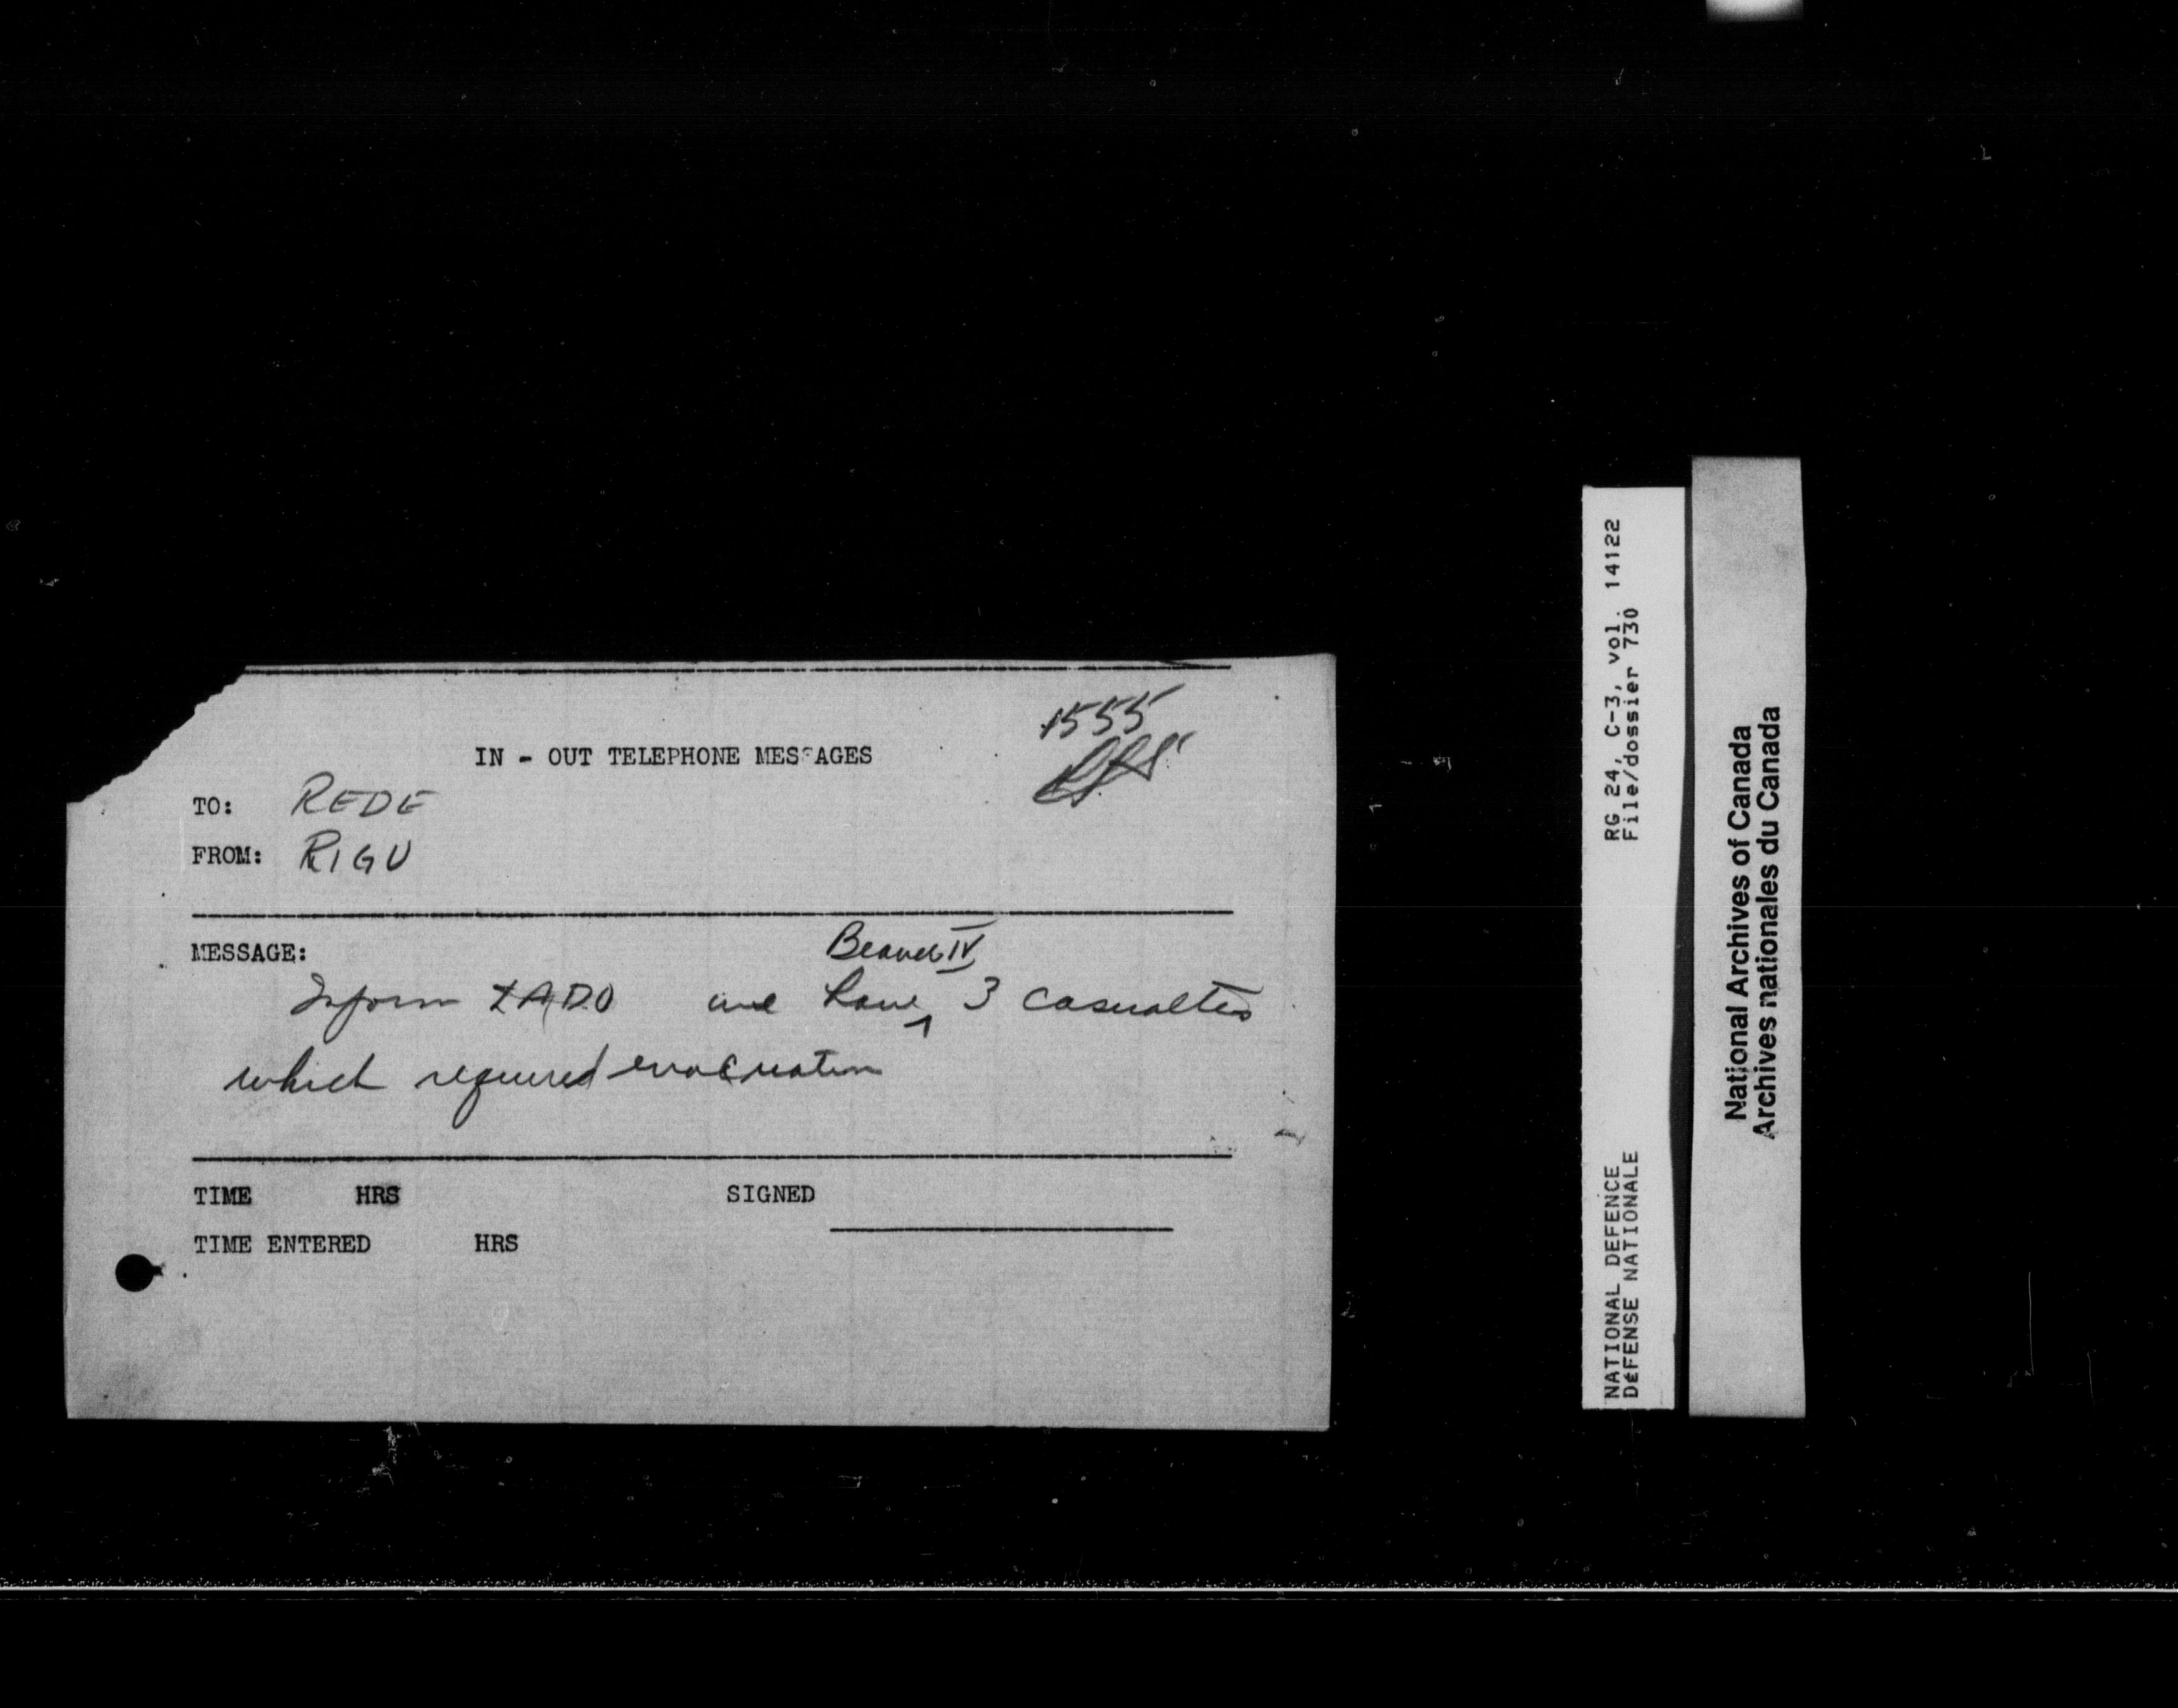 1555
IN - OUT TELEPHONE MESSAGES
TO: REDE
FROM: RIGU
MESSAGE:
Beaver IV
Inform we have ^ 3 casualties
which required evacuation
TIME HRS SIGNED
TIME ENTERED HRS
RG 24, C-3, vol. 14122
File/dossier 730
NATIONAL DEFENCE
DéFENSE NATIONALE
National Archives of Canada
Archives nationales du Canada